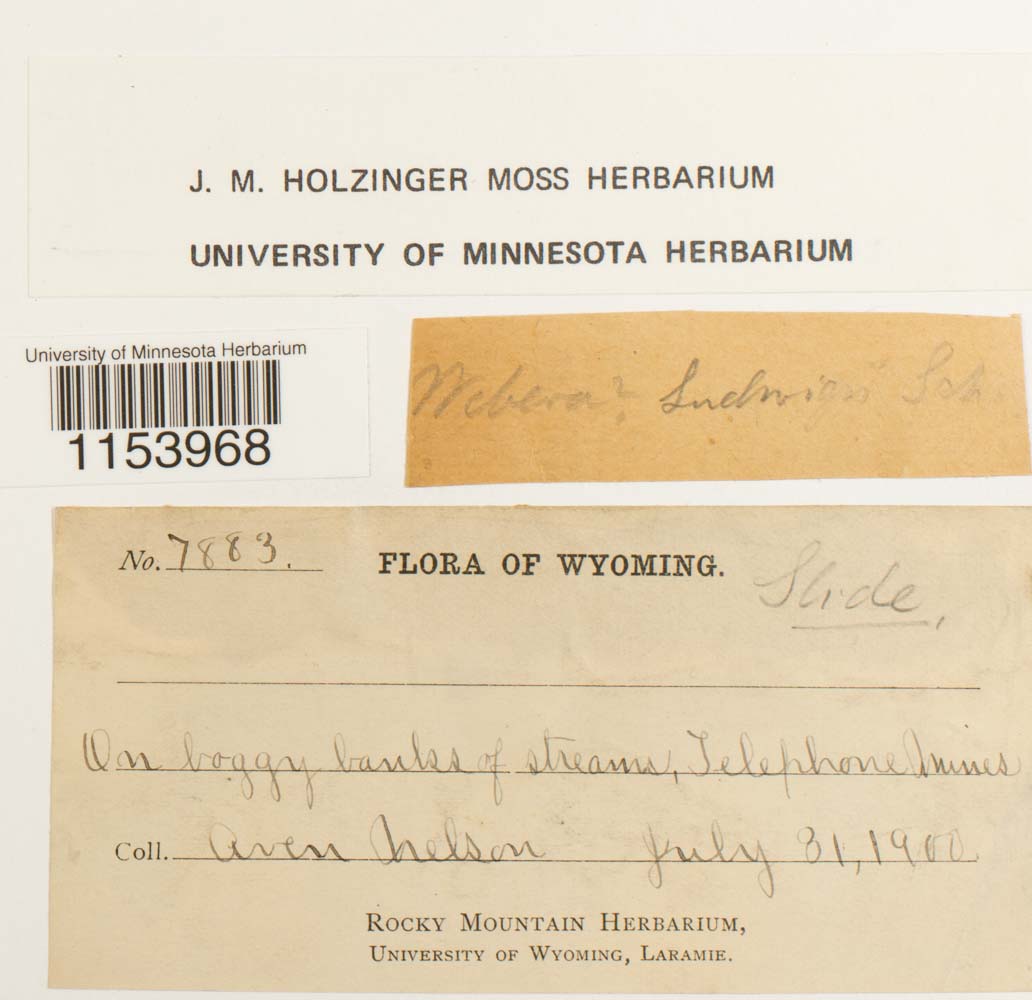 J. M. HOLZINGER MOSS HERBARIUM
UNIVERSITY OF MINNESOTA HERBARIUM
University of Minnesota Herbarium
1153968
Webera? Ludwigii Sch.
No. 7883. FLORA OF WYOMING.
Slide,
On boggy banks of streams, Telephone Mines
Coll. Aven Nelson July 31, 1900.
ROCKY MOUNTAIN HERBARIUM,
UNIVERSITY OF WYOMING, LARAMIE.